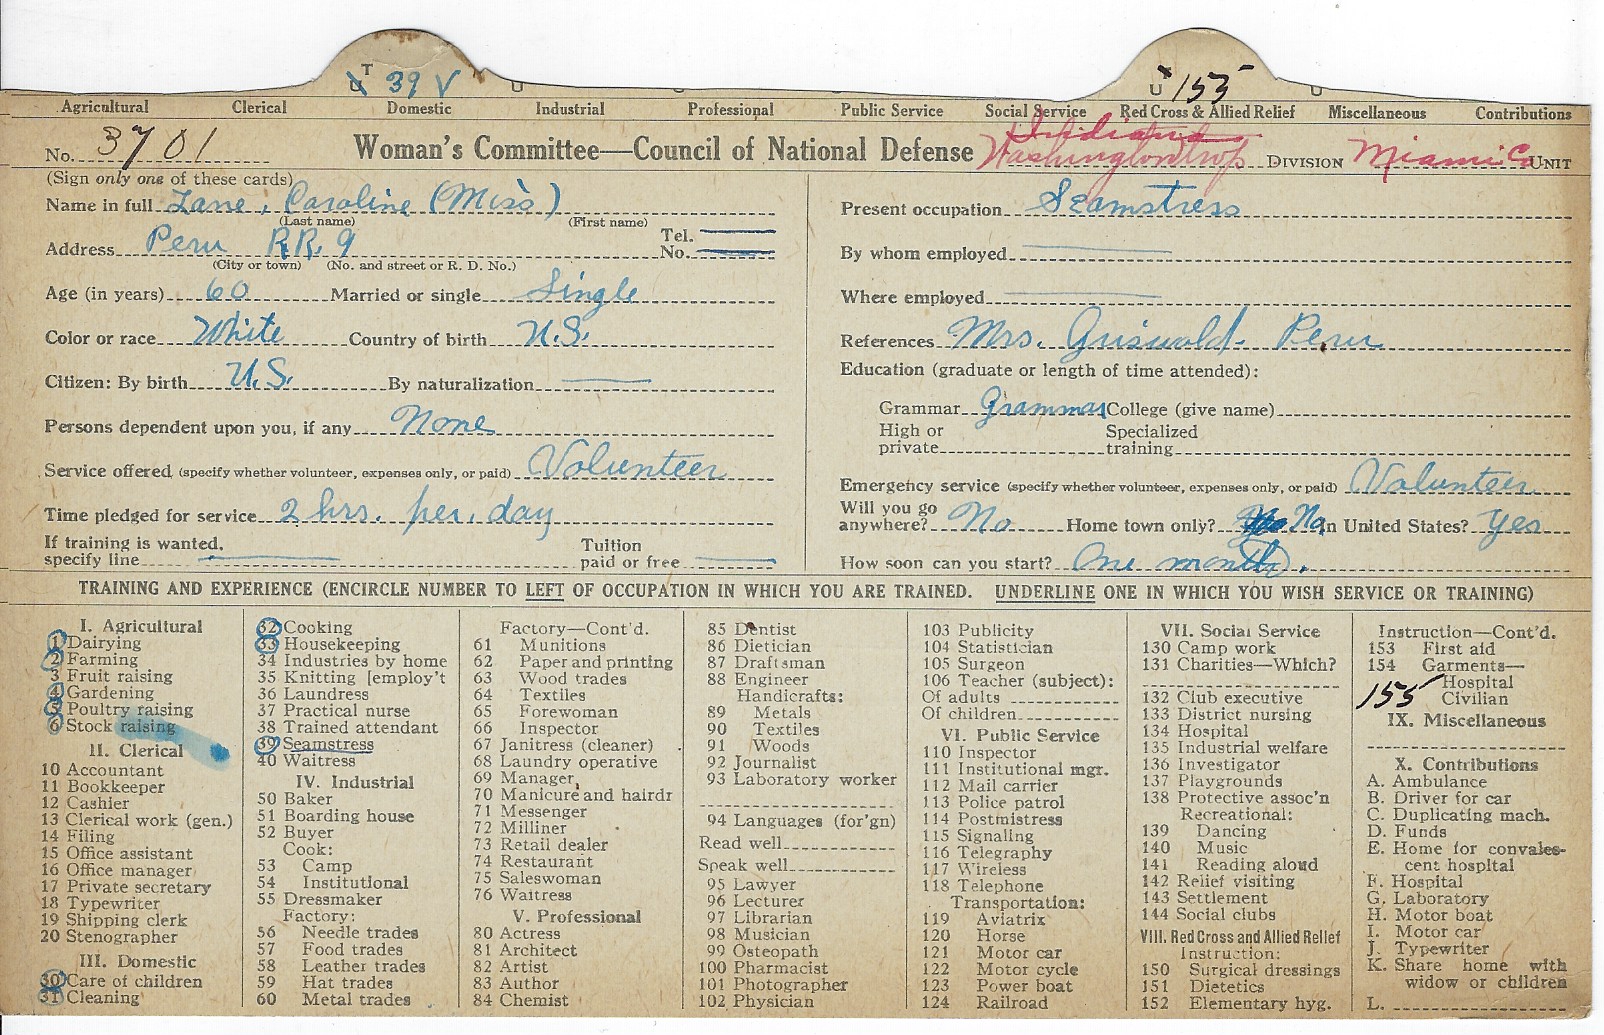 T
U 39 V U U 155 U
Agricultural Clerical Domestic Industrial Professional Public Service Social Service Red Cross & Allied Relief Miscellaneous Contributions
No. 3701 Woman's Committee—Council of National Defense Indiana
Washington twp DIVISION Miami Co UNIT
(Sign only one of these cards)
Name in full Lane, Caroline (Miss)
(Last name) (First name)
Address Peru R.R. 9 Tel. No.
(City or town) (No. and street or R. D. No.)
Age (in years) 60 Married or single Single
Color or race White Country of birth U.S.
Citizen: By birth U.S. By naturalization
Persons dependent upon you, if any None
Service offered (specify whether volunteer, expenses only, or paid) Volunteer
Time pledged for service 2 hrs. per. day
If training is wanted, specify line Tuition paid or free
Present occupation Seamstress
By whom employed
Where employed
References Mrs. Griswold - Peru
Education (graduate or length of time attended):
Grammar Grammar College (give name)
High or private Specialized training
Emergency service (specify whether volunteer, expenses only, or paid) Volunteer
Will you go anywhere? No Home town only? No In United States? Yes
How soon can you start? One month.
TRAINING AND EXPERIENCE (ENCIRCLE NUMBER TO LEFT OF OCCUPATION IN WHICH YOU ARE TRAINED. UNDERLINE ONE IN WHICH YOU WISH SERVICE OR TRAINING)
I. Agricultural
1 Dairying
2 Farming
3 Fruit raising
4 Gardening
5 Poultry raising
6 Stock raising
II. Clerical
10 Accountant
11 Bookkeeper
12 Cashier
13 Clerical work (gen.)
14 Filing
15 Office assistant
16 Office manager
17 Private secretary
18 Typewriter
19 Shipping clerk
20 Stenographer
III. Domestic
30 Care of children
31 Cleaning
32 Cooking
33 Housekeeping
34 Industries by home
35 Knitting [employ't
36 Laundress
37 Practical nurse
38 Trained attendant
39 Seamstress
40 Waitress
IV. Industrial
50 Baker
51 Boarding house
52 Buyer
Cook:
53 Camp
54 Institutional
55 Dressmaker
Factory:
56 Needle trades
57 Food trades
58 Leather trades
59 Hat trades
60 Metal trades
Factory—Cont'd.
61 Munitions
62 Paper and printing
63 Wood trades
64 Textiles
65 Forewoman
66 Inspector
67 Janitress (cleaner)
68 Laundry operative
69 Manager
70 Manicure and hairdr
71 Messenger
72 Milliner
73 Retail dealer
74 Restaurant
75 Saleswoman
76 Waitress
V. Professional
80 Actress
81 Architect
82 Artist
83 Author
84 Chemist
85 Dentist
86 Dietician
87 Draftsman
88 Engineer
Handicrafts:
89 Metals
90 Textiles
91 Woods
92 Journalist
93 Laboratory worker
94 Languages (for'gn)
Read well
Speak well
95 Lawyer
96 Lecturer
97 Librarian
98 Musician
99 Osteopath
100 Pharmacist
101 Photographer
102 Physician
103 Publicity
104 Statistician
105 Surgeon
106 Teacher (subject):
Of adults
Of children
VI. Public Service
110 Inspector
111 Institutional mgr.
112 Mail carrier
113 Police patrol
114 Postmistress
115 Signaling
116 Telegraphy
117 Wireless
118 Telephone
Transportation:
119 Aviatrix
120 Horse
121 Motor car
122 Motor cycle
123 Power boat
124 Railroad
VII. Social Service
130 Camp work
131 Charities—Which?
132 Club executive
133 District nursing
134 Hospital
135 Industrial welfare
136 Investigator
137 Playgrounds
138 Protective assoc'n
Recreational:
139 Dancing
140 Music
141 Reading aloud
142 Relief visiting
143 Settlement
144 Social clubs
VIII. Red Cross and Allied Relief
Instruction:
150 Surgical dressings
151 Dietetics
152 Elementary hyg.
Instruction—Cont'd.
153 First aid
154 Garments—
Hospital
155 Civilian
IX. Miscellaneous
X. Contributions
A. Ambulance
B. Driver for car
C. Duplicating mach.
D. Funds
E. Home for convalescent hospital
F. Hospital
G. Laboratory
H. Motor boat
I. Motor car
J. Typewriter
K. Share home with
widow or children
L.